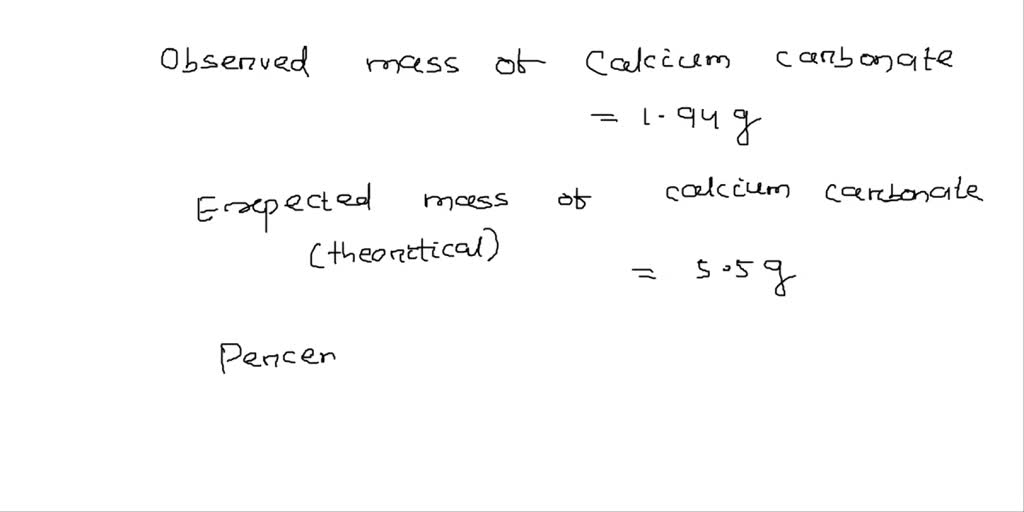 Observed mass of Calcium carbonate
= 1.94 g
Expected mass of calcium carbonate
(theoritical)
= 5.5 g
Percen